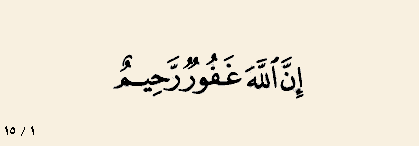 إِنَّ ٱللَّهَ غَفُورٌ رَّحِيمٌ
١ / ١٥